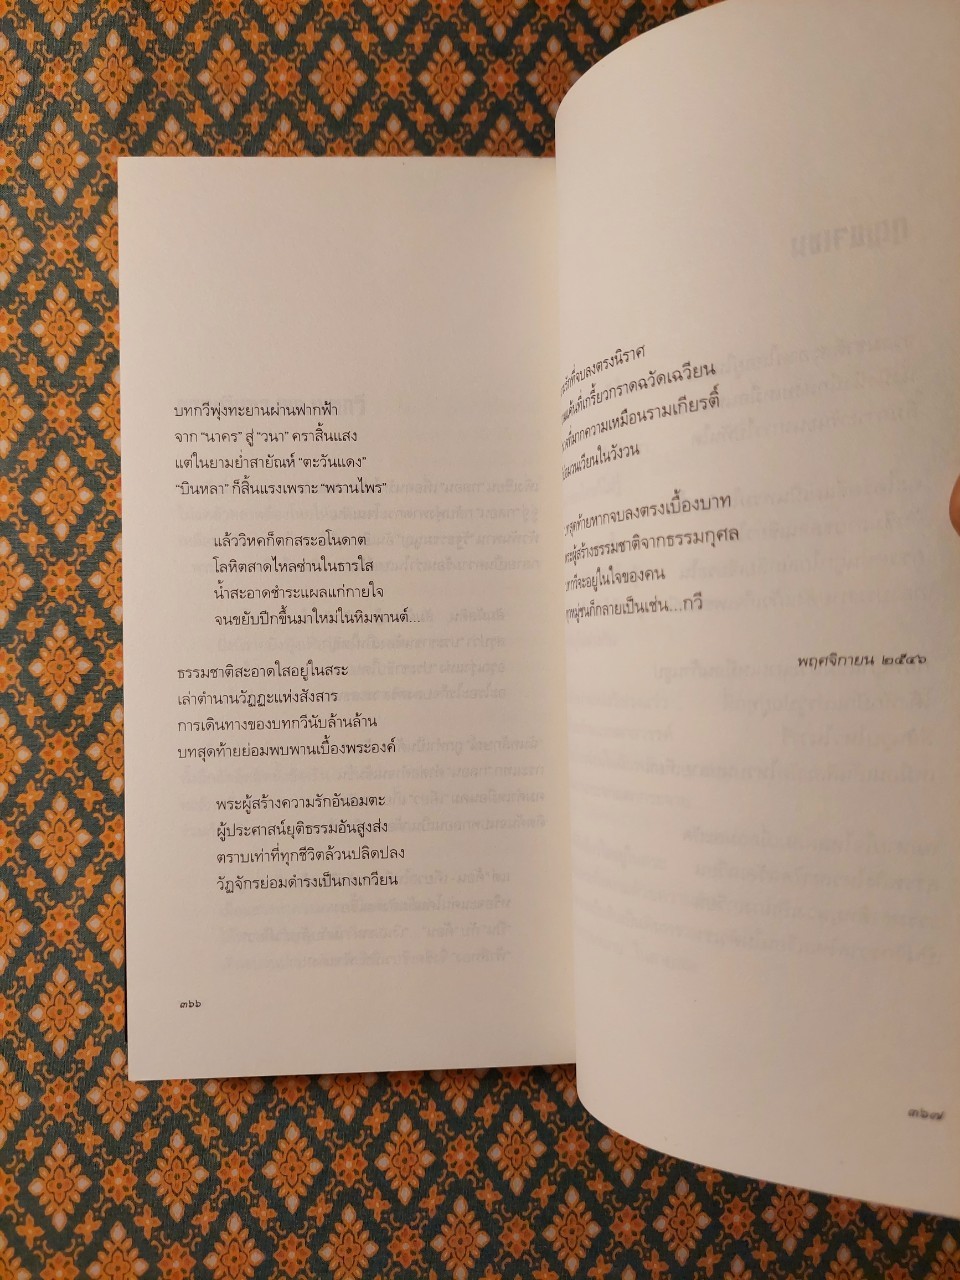 บทกวีพุ่งทะยานผ่านฟากฟ้า
จาก “นาคร” สู่ “วนา” คราสิ้นแสง
แต่ในยามย่ำสายัณห์ “ตะวันแดง”
“บินหลา” ก็สิ้นแรงเพราะ “พรานไพร”
แล้ววิหคก็ตกสระอโนดาต
โลหิตสาดไหลซ่านในธารใส
น้ำสะอาดชำระแผลแก่กายใจ
จนขยับปีกขึ้นมาใหม่ในหิมพานต์...
ธรรมชาติสะอาดใสอยู่ในสระ
เล่าตำนานวัฏฏะแห่งสังสาร
การเดินทางของบทกวีนับล้านล้าน
บทสุดท้ายย่อมพบพานเบื้องพระองค์
พระผู้สร้างความรักอันอมตะ
ผู้ประศาสน์ยุติธรรมอันสูงส่ง
ตราบเท่าที่ทุกชีวิตล้วนปลิดปลง
วัฏจักรย่อมดำรงเป็นกงเกวียน
๓๖๖
ที่จบลงตรงนิราศ
ที่เกรี้ยวกราดฉวัดเฉวียน
ที่มากความเหมือนรามเกียรติ์
วนเวียนในวังวน
สุดท้ายหากจบลงตรงเบื้องบาท
พระผู้สร้างธรรมชาติจากธรรมกุศล
กวีจะอยู่ในใจของคน
หมู่ชนก็กลายเป็นเช่น...กวี
พฤศจิกายน ๒๕๔๖
๓๖๗